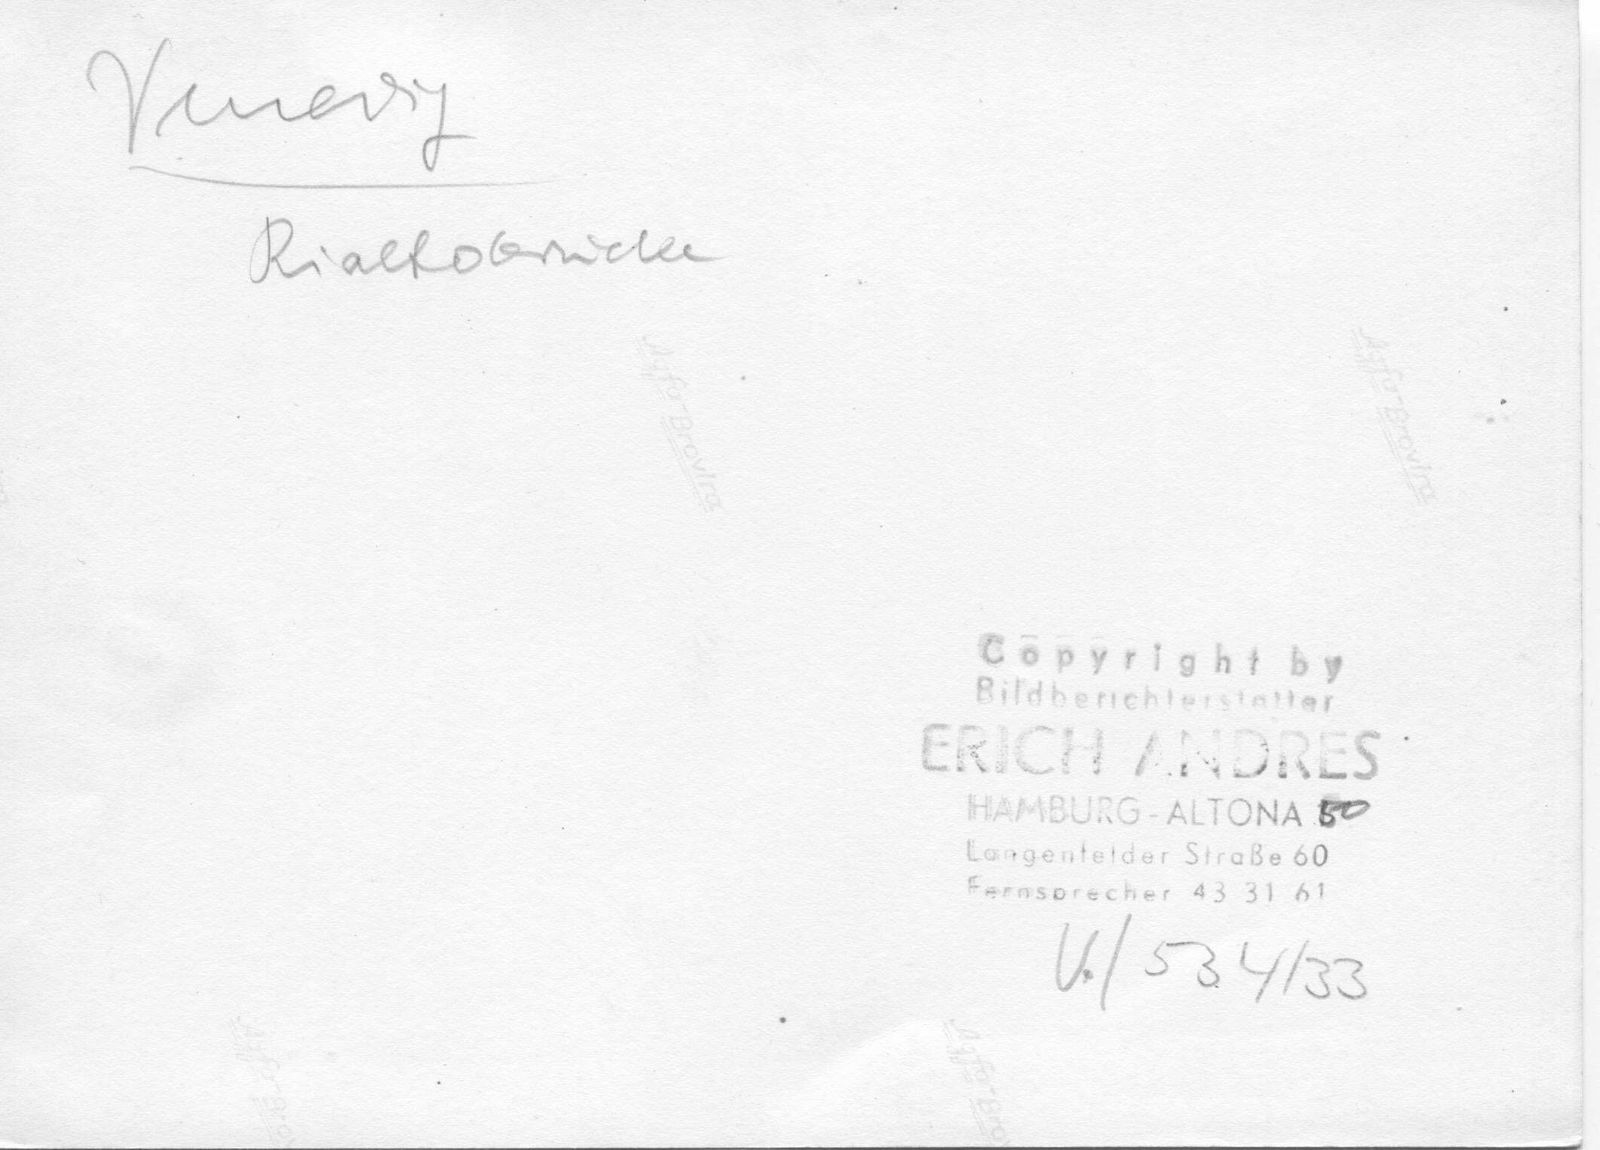 Venedig
Rialtobrücke
Agfa-Brovira
Agfa-Brovira
Copyright by
Bildberichterstatter
ERICH ANDRES
HAMBURG-ALTONA 50
Langenfelder Straße 60
Fernsprecher 43 31 61
V./534/33
Agfa-Bro
Agfa-Bro